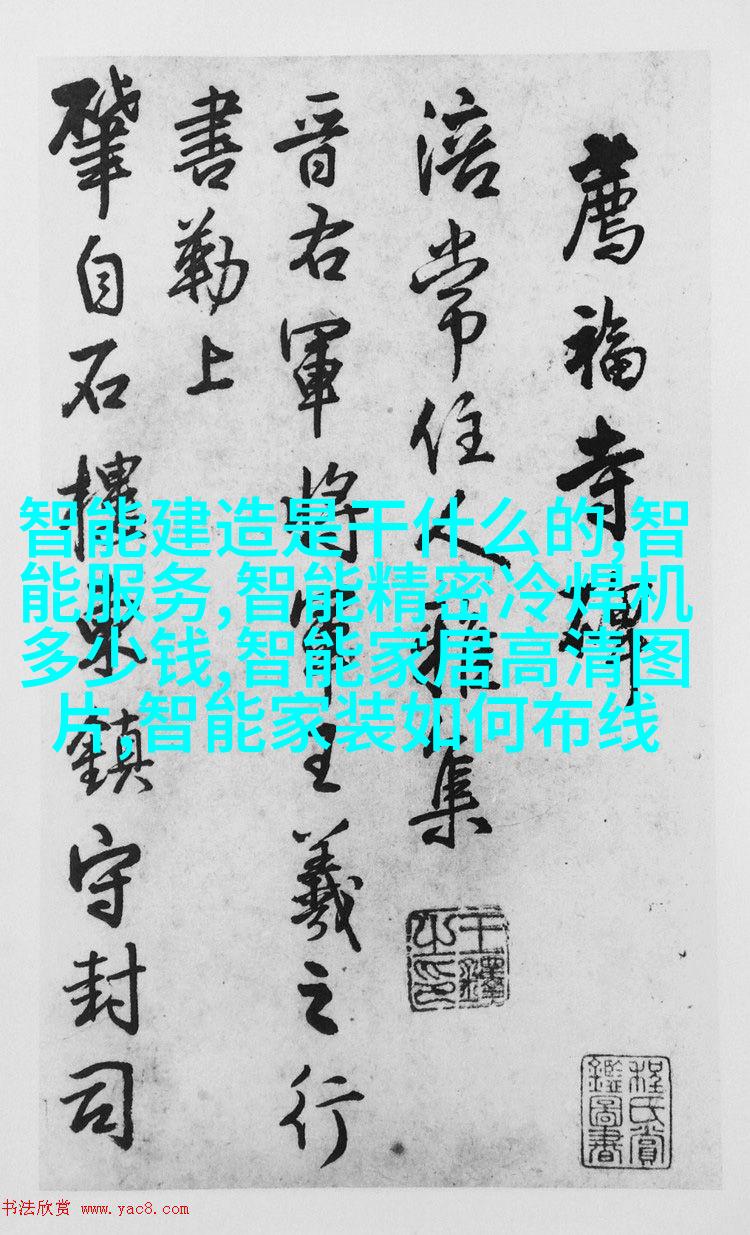 薦福寺碑
涪常住人雅集
晉右軍將軍王羲之行
書勒上
肇自石樓東鎮守封司
王鐸
之印
程氏賞
鑑圖書
智能建造是干什么的,智
能服务,智能精密冷焊机
多少钱,智能家居高清图
片,智能家装如何布线
书法欣赏 www.yac8.com